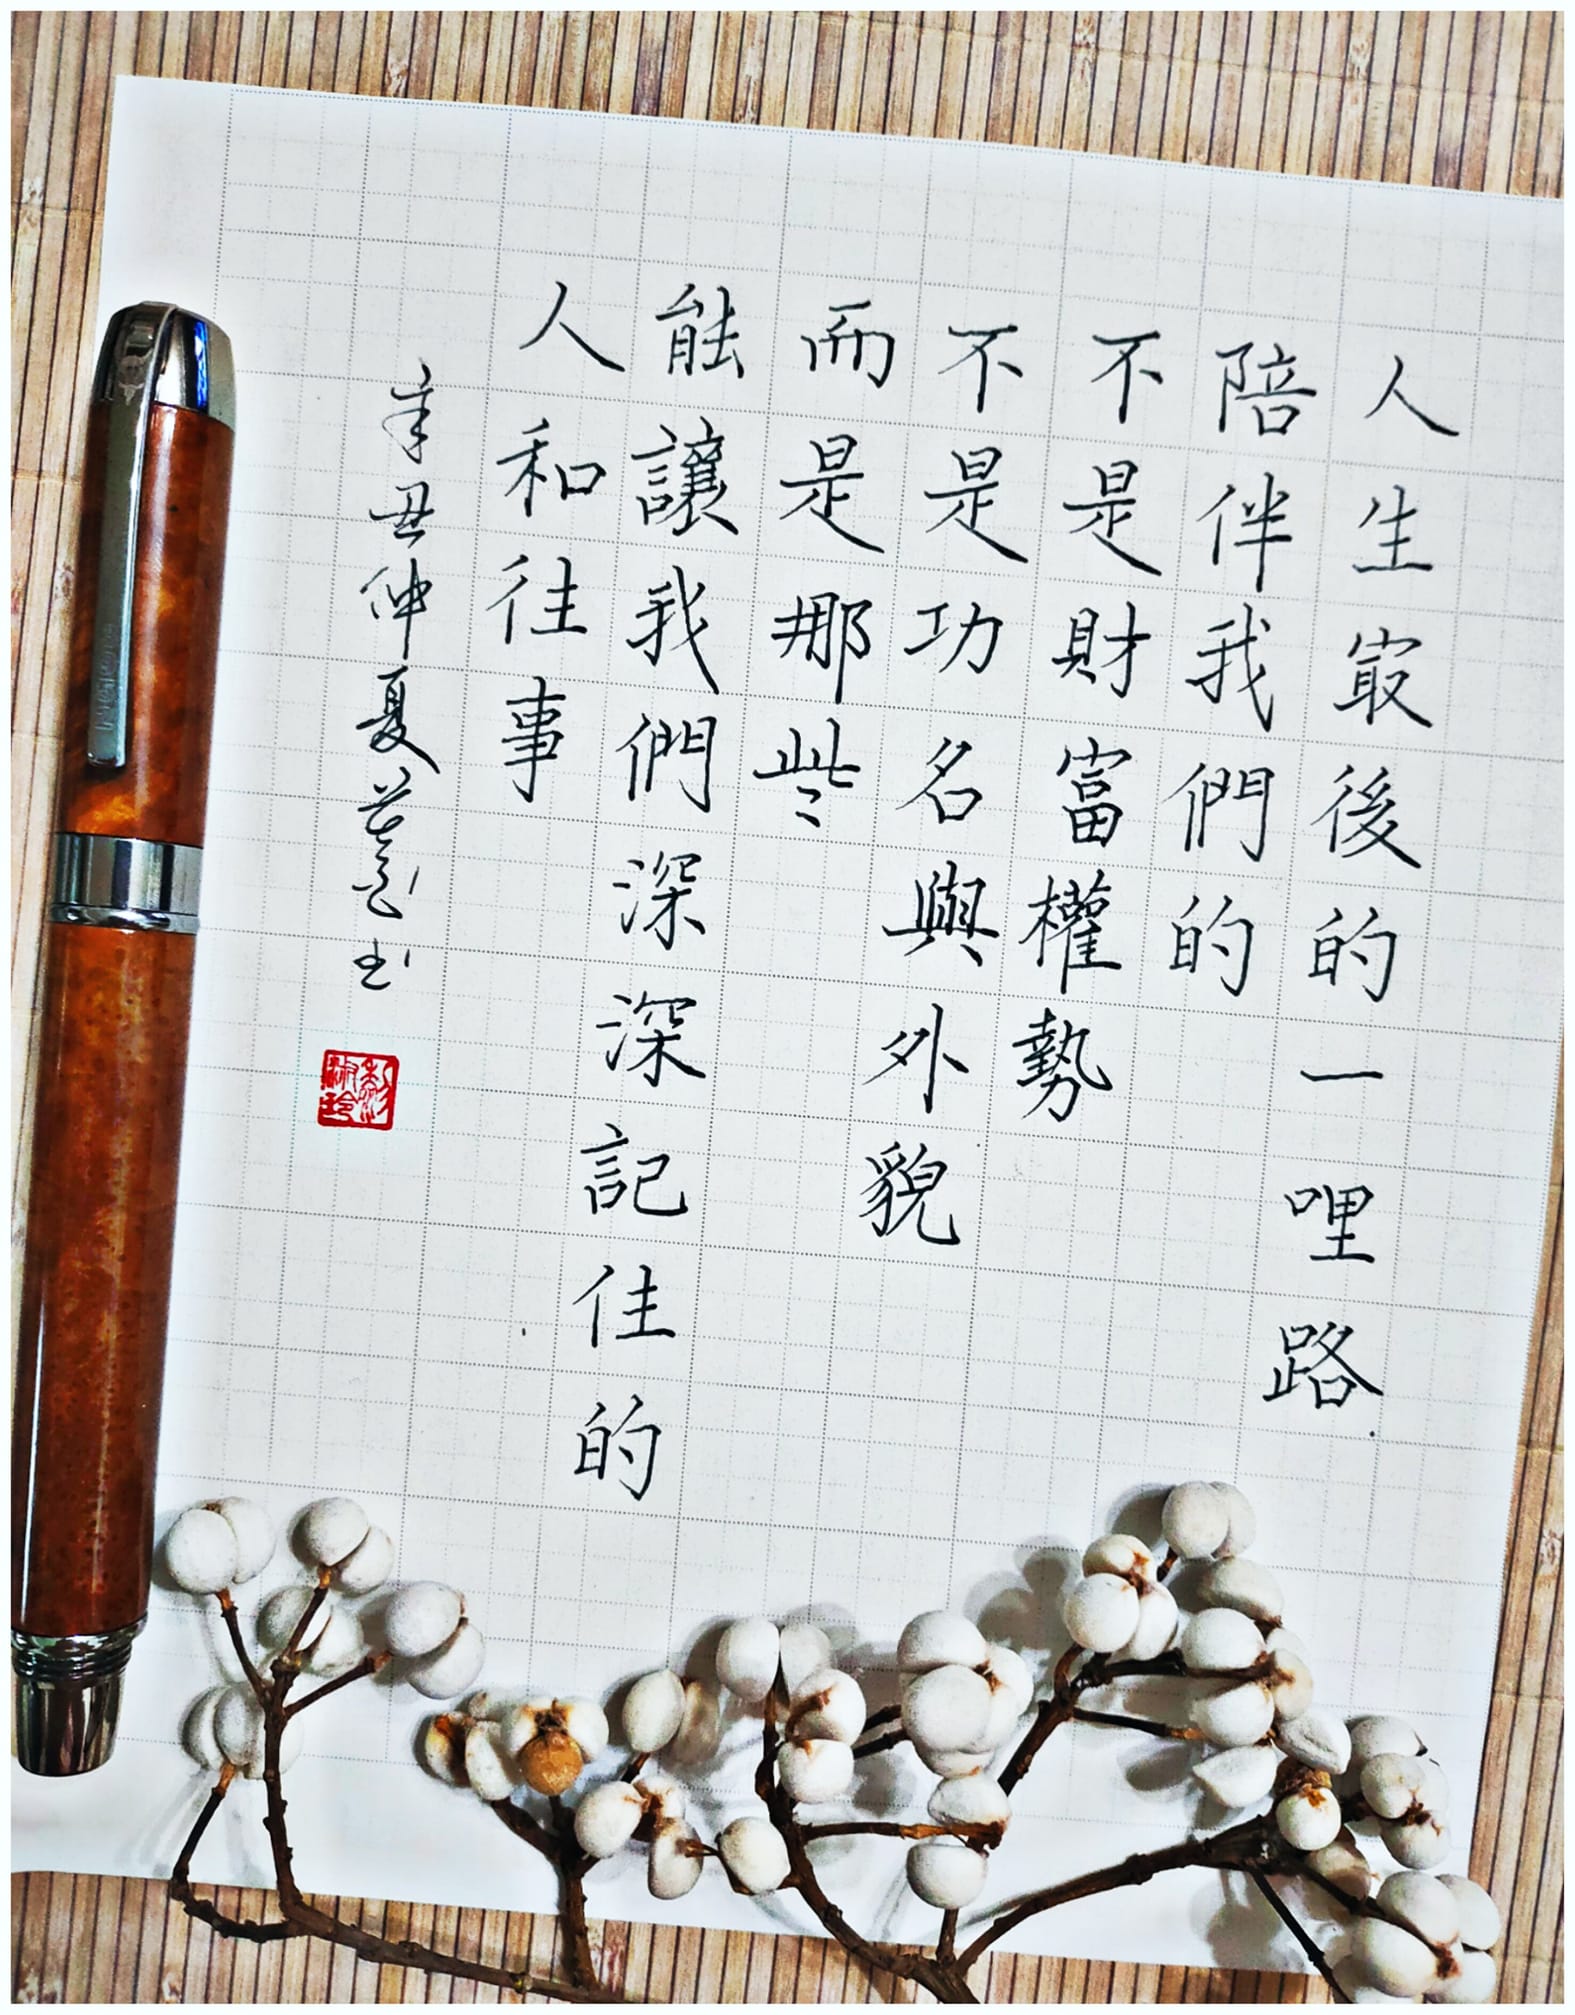 人生㝡後的一哩路
陪伴我們的
不是財富權勢
不是功名與外貌
而是那些
能讓我們深深記住的
人和往事
辛丑仲夏
书